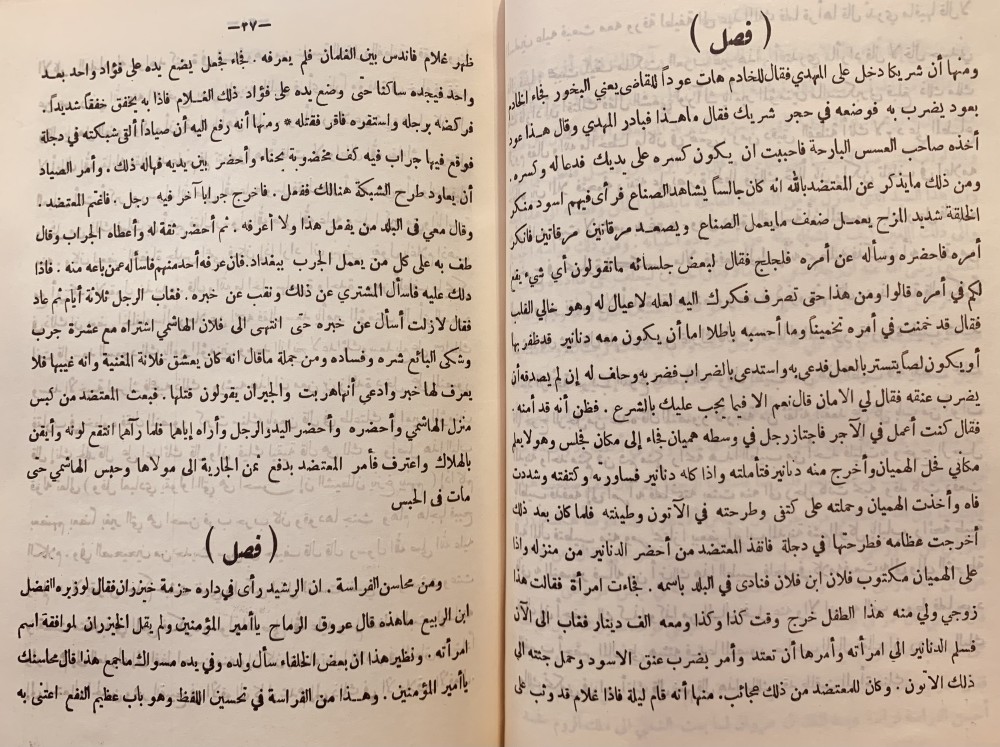 ( فصل )
ومنها أن شريكا دخل على المهدي فقال للخادم هات عوداً للقاضى يعني البخور فجاء الخادم
بعود يضرب به فوضعه في حجر شريك فقال ماهـذا فبادر المهدي وقال هـذا عود
أخذه صاحب العسس البارحة فاحببت ان يكون كسره على يديك فدعا له وكسره.
ومن ذلك مايذكر عن المعتضد بالله انه كان جالساً يشاهد الصناع فرأى فيهم اسود منكر
الخلقة شديد المزح يعمـل ضعف مايعمل الصناع ويصعـد مرقاتين مرقاتين فانكر
أمره فاحضره وسأله عن أمره فلجلج فقال لبعض جلسائه ماتقولون أي شيء يقع
لكم في أمره قالوا ومن هذا حتى تصرف فكرك اليه لعله لاعيال له وهو خالي القلب
فقال قد خمنت في أمره تخميناً وما أحسبه باطلا اما أن يكون معه دنانير قدظفر بها
أو يكون لصاً يتستر بالعمل فدعي به واستدعى بالضراب فضربه وحلف له إن لم يصدقه أن
يضرب عنقه فقال لي الامان قال نعم الا فيما يجب عليك بالشرع . فظن أنه قد أمنه.
فقال كنت أعمل في الآجر فاجتاز رجل في وسطه هميان فجاء إلى مكان فجلس وهو لايعلم
مكاني فحل الهميان وأخرج منه دنانير فتأملته واذا كله دنانير فساورته وكتفته وشددت
فاه وأخذت الهميان وحملته على كتفى وطرحته في الآتون وطينته فلما كان بعد ذلك
أخرجت عظامه فطرحتها في دجلة فانفذ المعتضد من أحضر الدنانير من منزله واذا
على الهميان مكتوب فلان ابن فلان فنادى في البلد باسمه . فجاءت امرأة فقالت هذا
زوجي ولي منه هذا الطفل خرج وقت كذا وكذا ومعه الف دينار فغاب الى الآن
فسلم الدنانير الى امرأته وأمرها أن تعتد وأمر بضرب عنق الاسود وحمل جثته الى
ذلك الآتون . وكان للمعتضد من ذلك عجائب. منها أنه قام ليلة فاذا غلام قد وثب على
—٣٧—
ظهر غلام فاندس بين الغلمان فلم يعرفه . فجاء فجعل يضع يده على فؤاد واحد بعـد
واحد فيجده ساكنا حتى وضع يده على فؤاد ذلك الغـلام فاذا به يخفق خفقاً شديداً .
فركضه برجله واستقره فاقر فقتله * ومنها أنه رفع اليه أن صياداً ألقى شبكته في دجلة
فوقع فيها جراب فيه كف مخضوبة بحناء وأحضر بين يديه فهاله ذلك . وأمر الصياد
أن يعاود طرح الشبكة هنالك ففعل . فاخرج جرابا آخر فيه رجل . فاغتم المعتضد .
وقال معي في البلد من يفعل هذا ولا أعرفه . ثم أحضر ثقة له وأعطاه الجراب وقال
طف به على كل من يعمل الجرب ببغداد. فان عرفه أحد منهم فاسأله عمن باعه منه . فاذا
دلك عليه فاسأل المشتري عن ذلك ونقب عن خبره . فغاب الرجل ثلاثة أيام ثم عاد
فقال لازلت أسأل عن خبره حتى انتهى الى فلان الهاشمي اشتراه مع عشرة جرب
وشكى البائع شره وفساده ومن جملة ماقال انه كان يعشق فلانة المغنية وانه غيبها فلا
يعرف لها خبر وادعي أنها هربت والجيران يقولون قتلها . فبعث المعتضد من كبس
منزل الهاشمي وأحضره وأحضر اليد والرجل وأراه إياها فلما رآهما انتقع لونه وأيقن
بالهلاك واعترف فأمر المعتضد بدفع ثمن الجارية الى مولاها وحبس الهاشمي حتى
مات في الحبس
( فصل )
ومن محاسن الفراسة . ان الرشيد رأى في داره حزمة خيزران فقال لوزيره الفضل
ابن الربيع ماهذه قال عروق الرماح ياأمير المؤمنين ولم يقل الخيزران لموافقة اسم
امرأته . ونظير هذا ان بعض الخلفاء سأل ولده وفي يده مسواك ماجمع هذا قال محاسنك
ياأمير المؤمنين . وهـذا من الفراسة في تحسين اللفظ وهو باب عظيم النفع اعتنى به